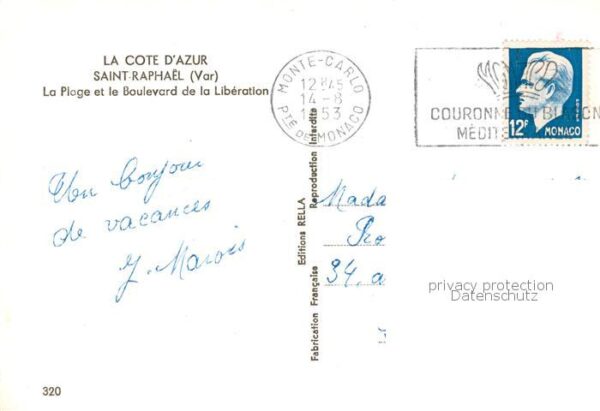 LA COTE D'AZUR
SAINT-RAPHAËL (Var)
La Plage et le Boulevard de la Libération
MONTE-CARLO
12 H45
14-8
1953
Pté DE MONACO
COURONNE
MÉDITE
12F
MONACO
Un bonjour
de vacances
J. Marois
Editions RELLA
Reproduction Interdite
Fabrication Française
Mada
34, a
privacy protection
Datenschutz
320